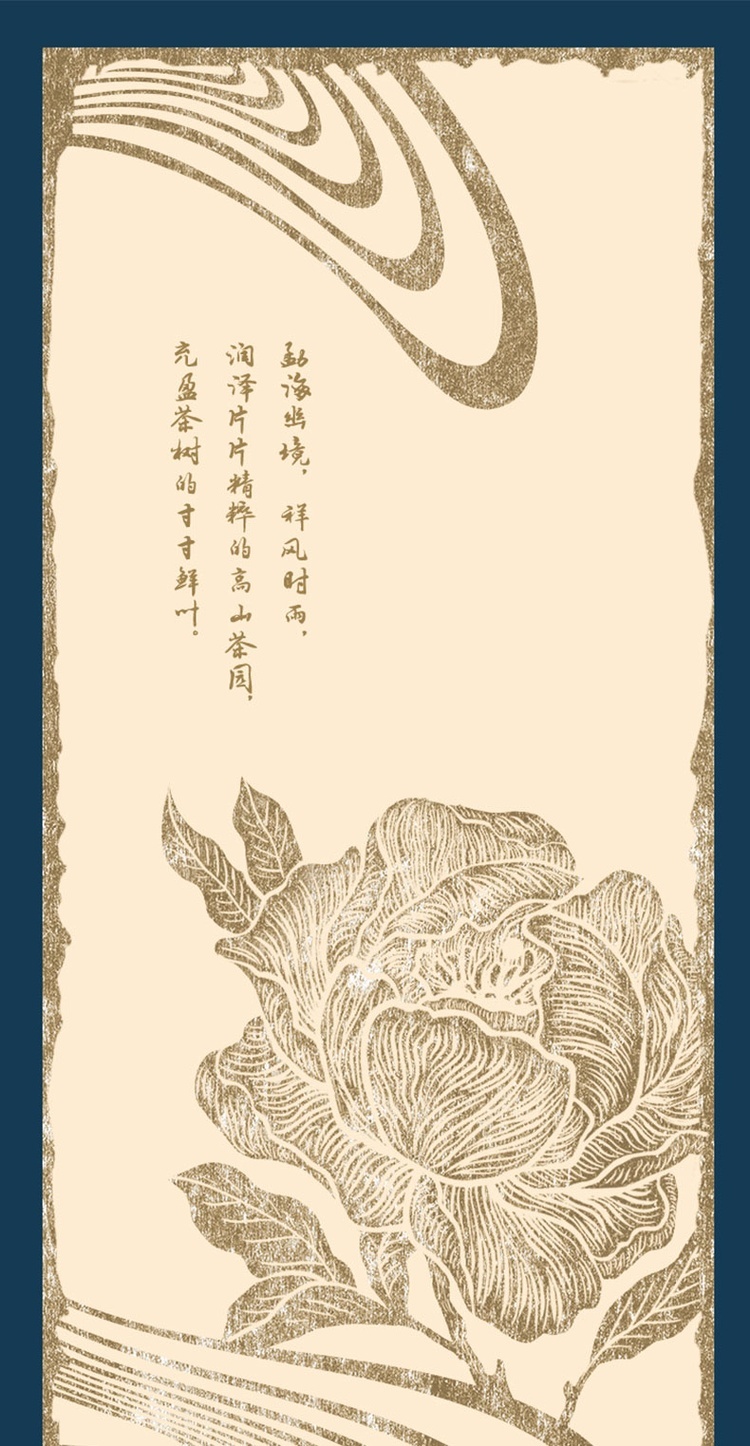 勐海幽境，祥风时雨，
润泽片片精粹的高山茶园，
充盈茶树的寸寸鲜叶。